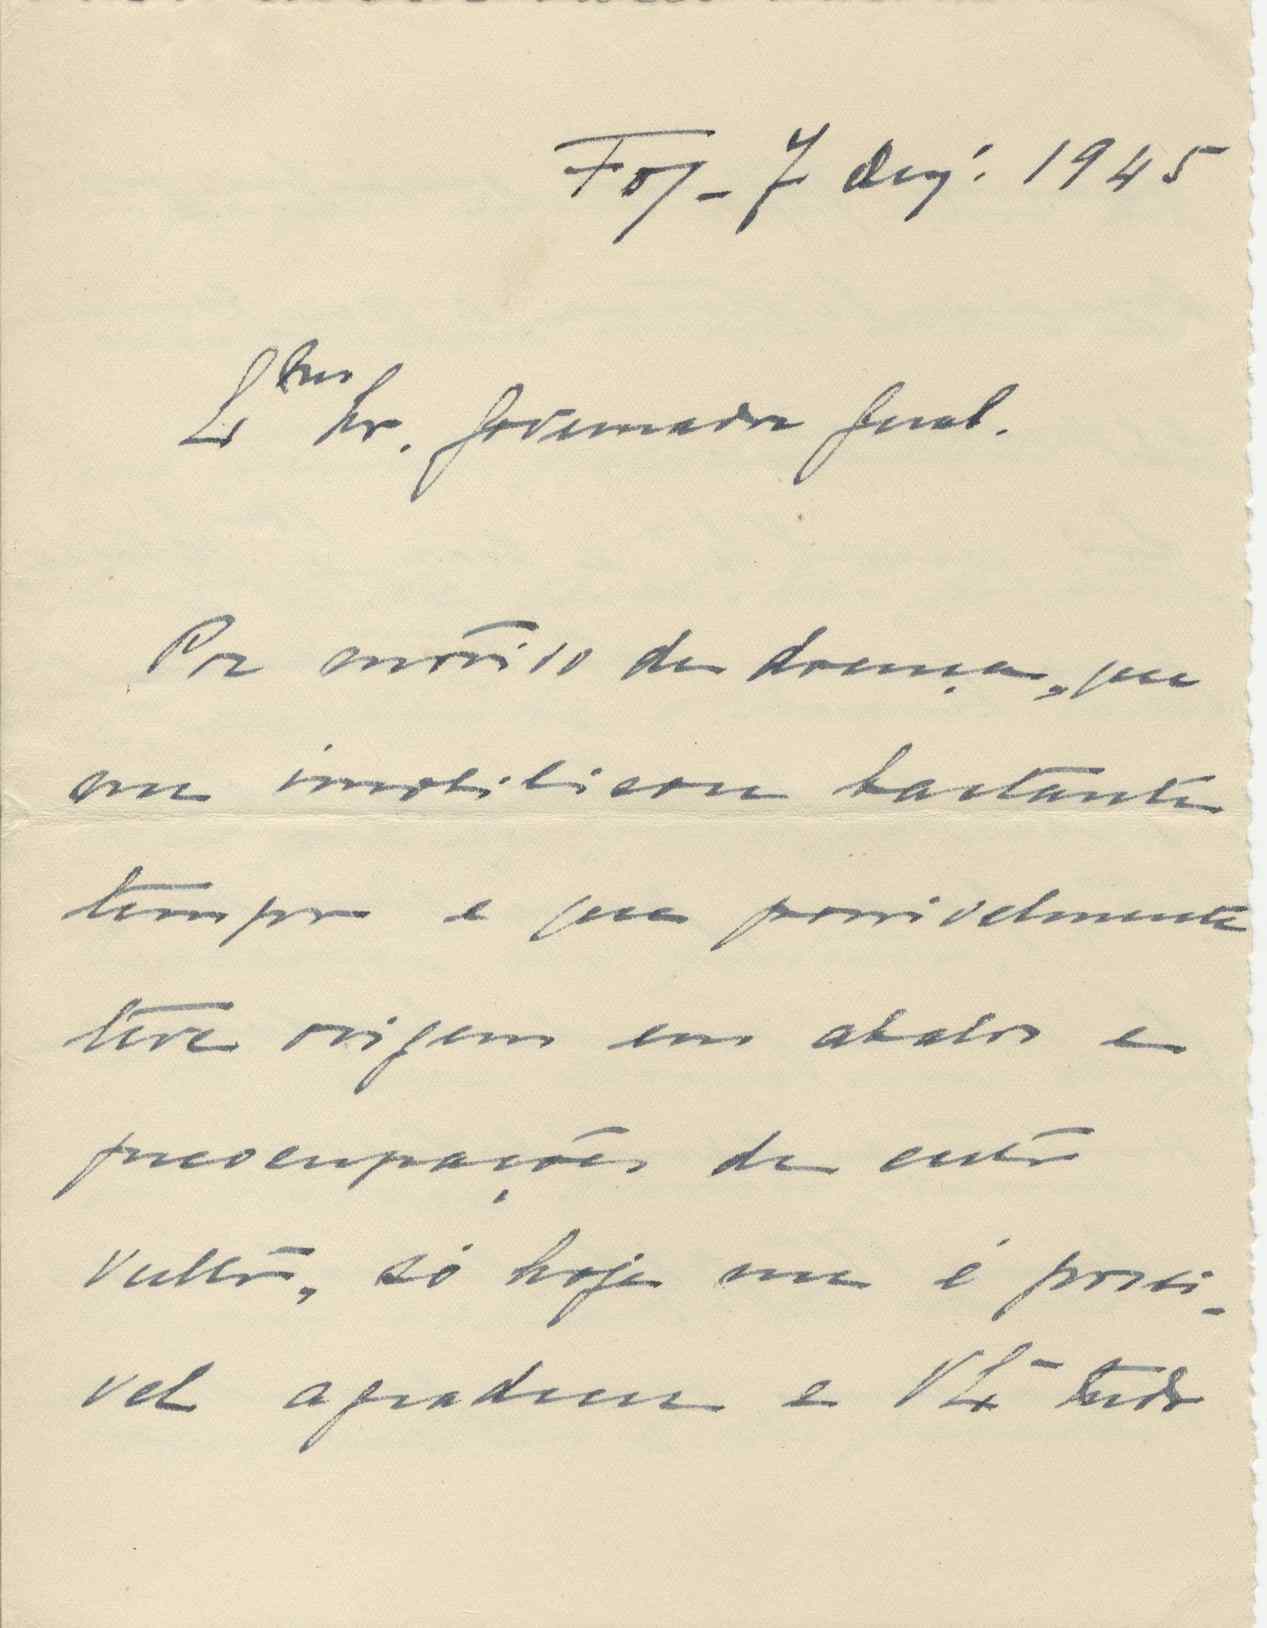 Foz - 7 Dez. 1945
Exmo Sr. Governador Geral.
Por motivo de doença, que
me imobilisou bastante
tempo e que possivelmente
teve origem em abalos e
preocupações de certo
vulto, só hoje me é possi-
vel agradecer a V Ex tudo